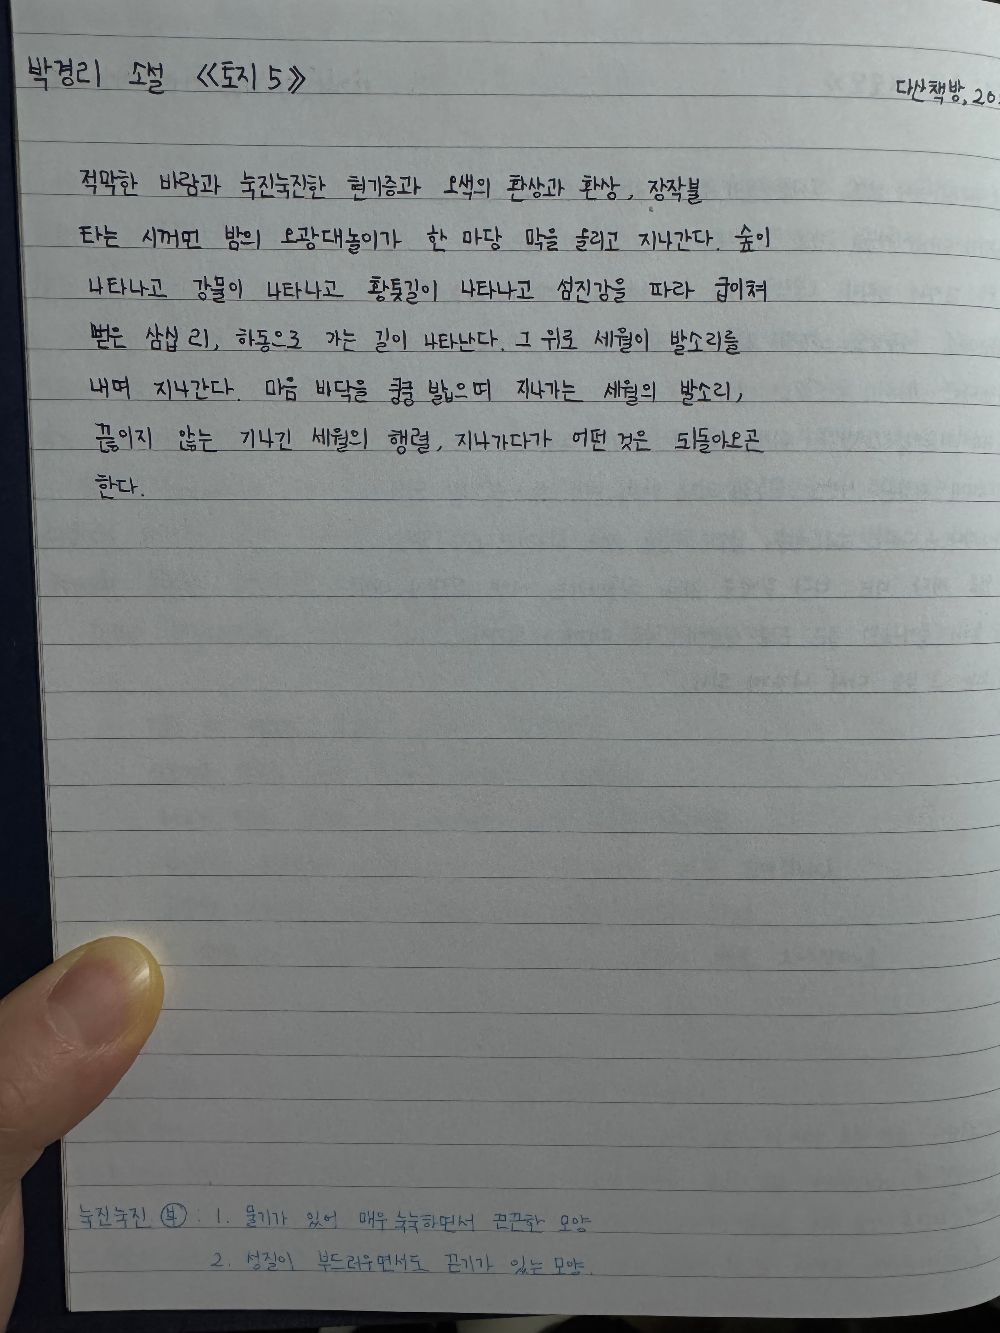 박경리 소설 《토지 5》
다산책방, 20
적막한 바람과 눅진눅진한 현기증과 오색의 환상과 환상, 장작불
타는 시꺼먼 밤의 오광대놀이가 한 마당 막을 올리고 지나간다. 숲이
나타나고 강물이 나타나고 황톳길이 나타나고 섬진강을 따라 굽이쳐
뻗은 삼십 리, 하동으로 가는 길이 나타난다. 그 위로 세월이 발소리를
내며 지나간다. 마음 바닥을 쿵쿵 밟으며 지나가는 세월의 발소리,
끊이지 않는 기나긴 세월의 행렬, 지나가다가 어떤 것은 되돌아오곤
한다.
눅진눅진 부 : 1. 물기가 있어 매우 눅눅하면서 끈끈한 모양
2. 성질이 부드러우면서도 끈기가 있는 모양.